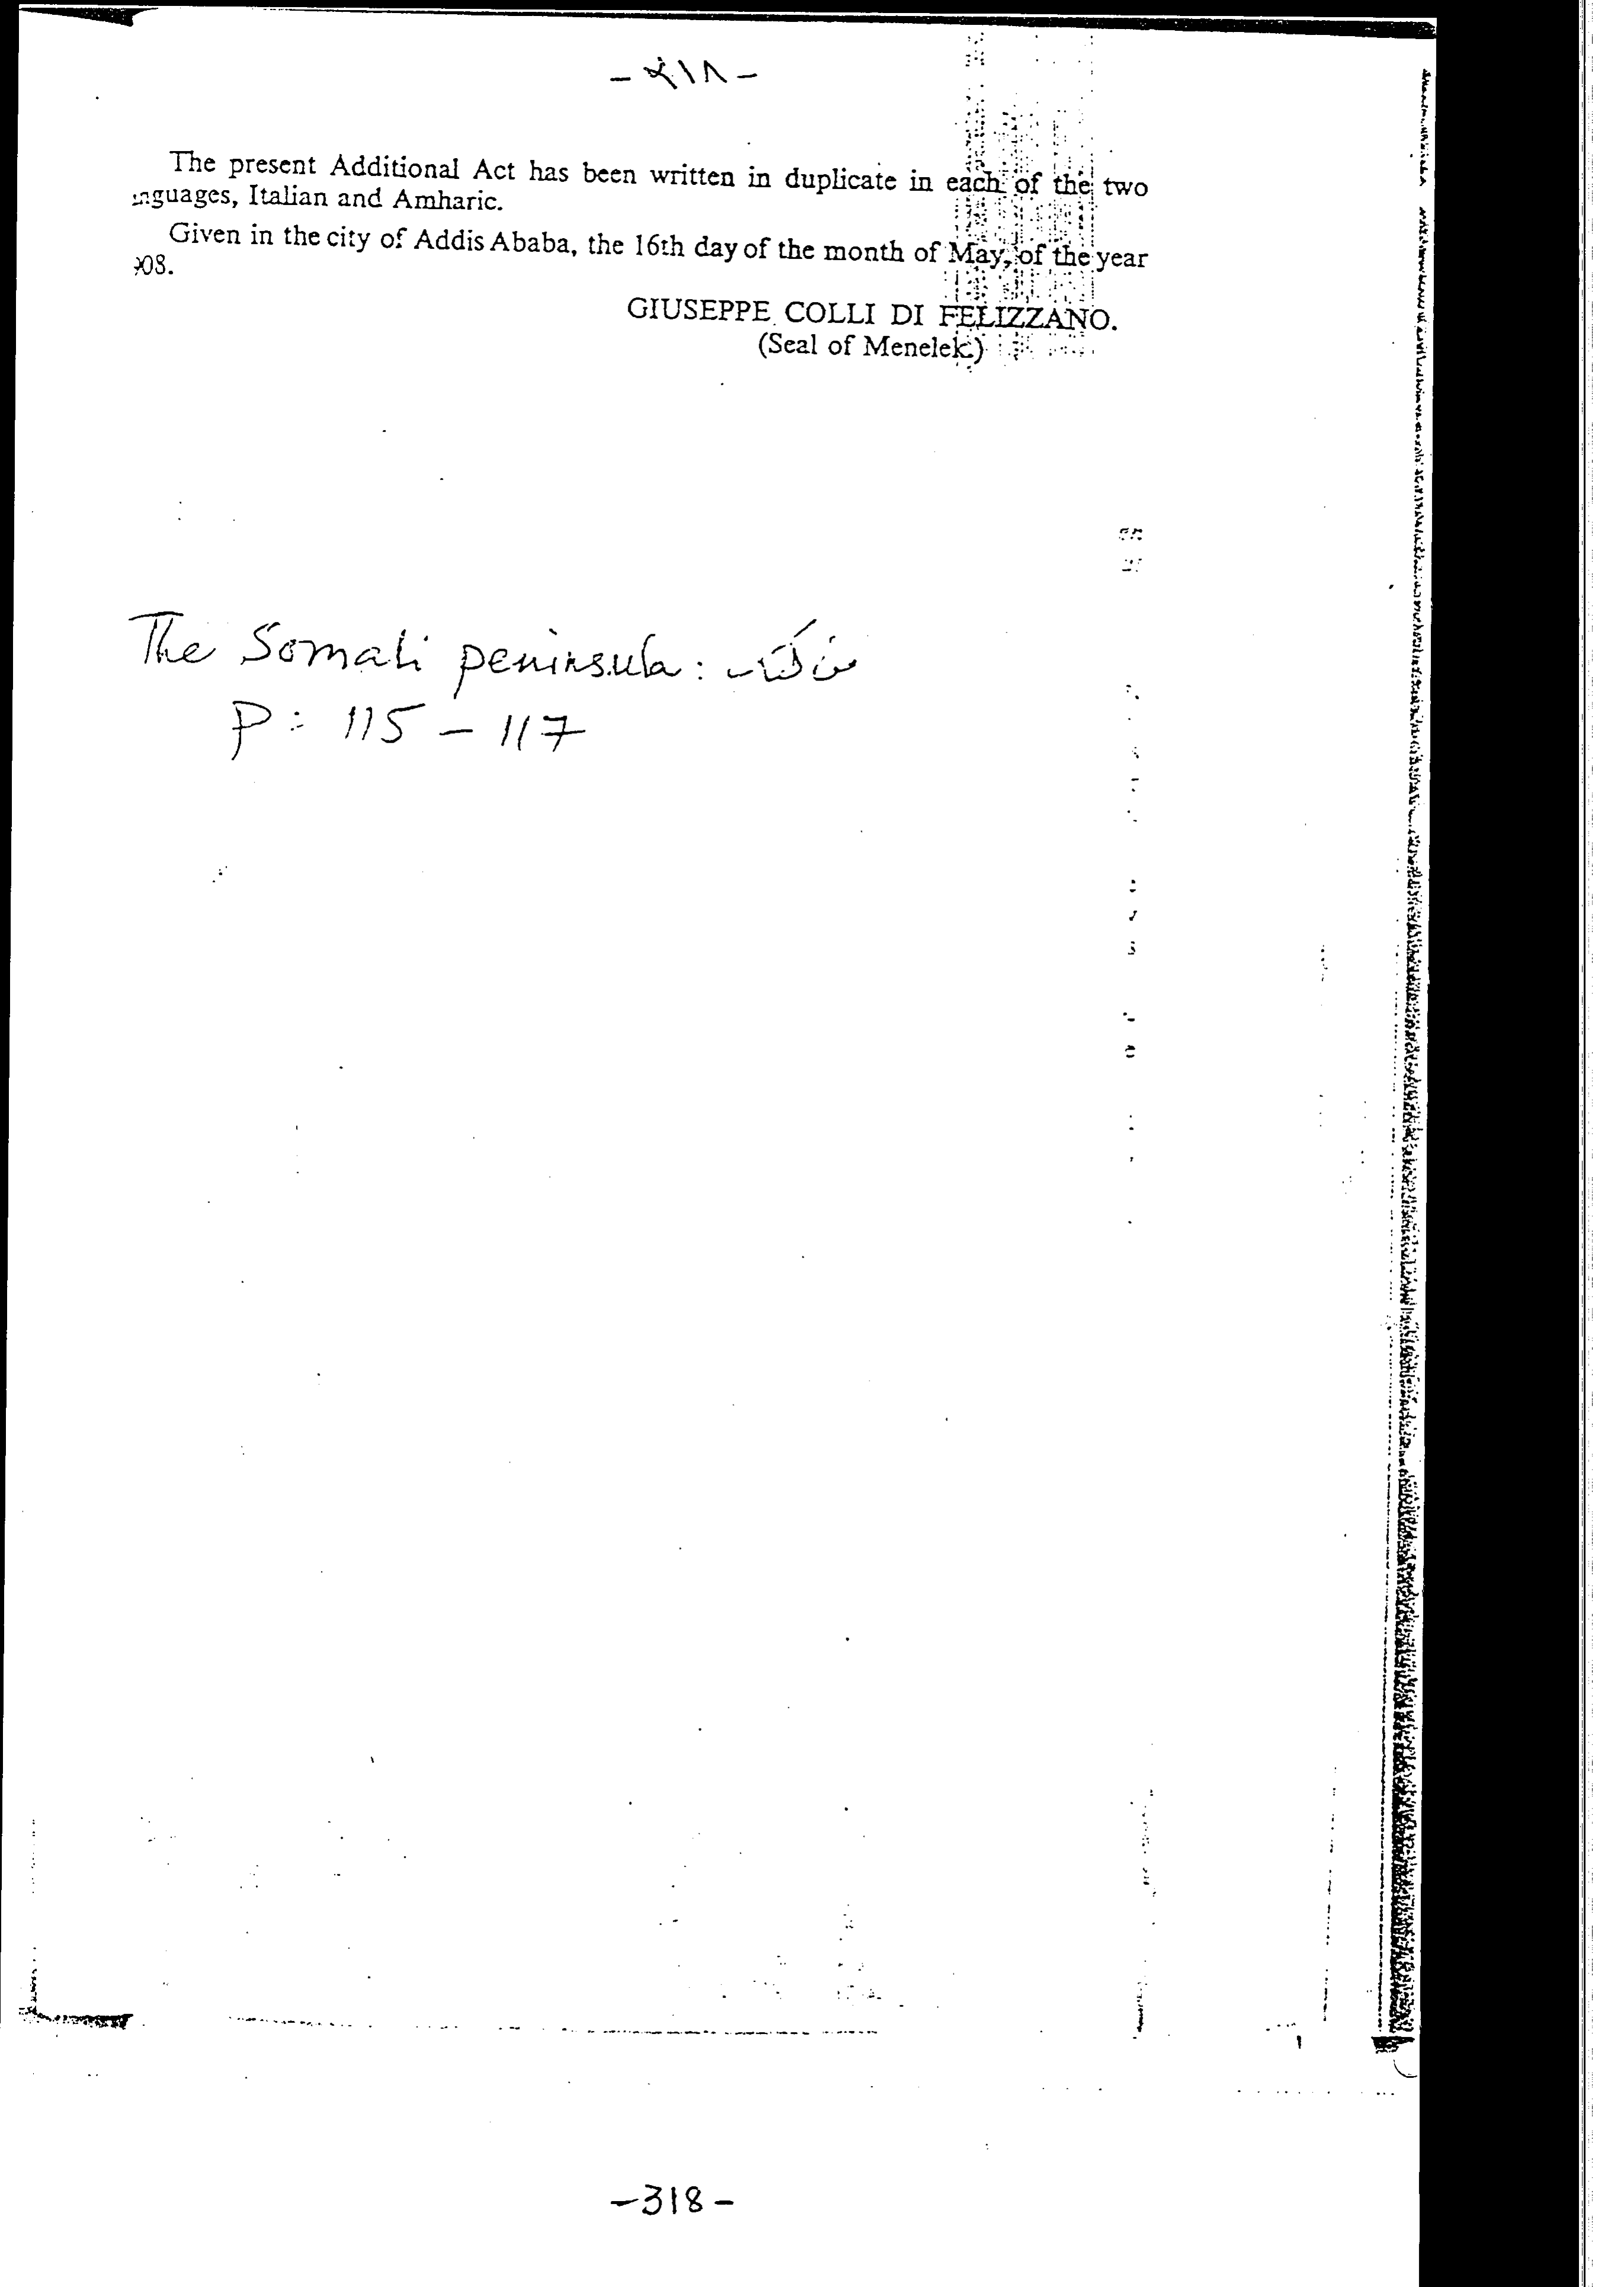 - ٣١٨ -
The present Additional Act has been written in duplicate in each of the two
nguages, Italian and Amharic.
Given in the city of Addis Ababa, the 16th day of the month of May, of the year
908.
GIUSEPPE COLLI DI FELIZZANO.
(Seal of Menelek.)
The Somali peninsula : من كتاب
P: 115 - 117
- 318 -